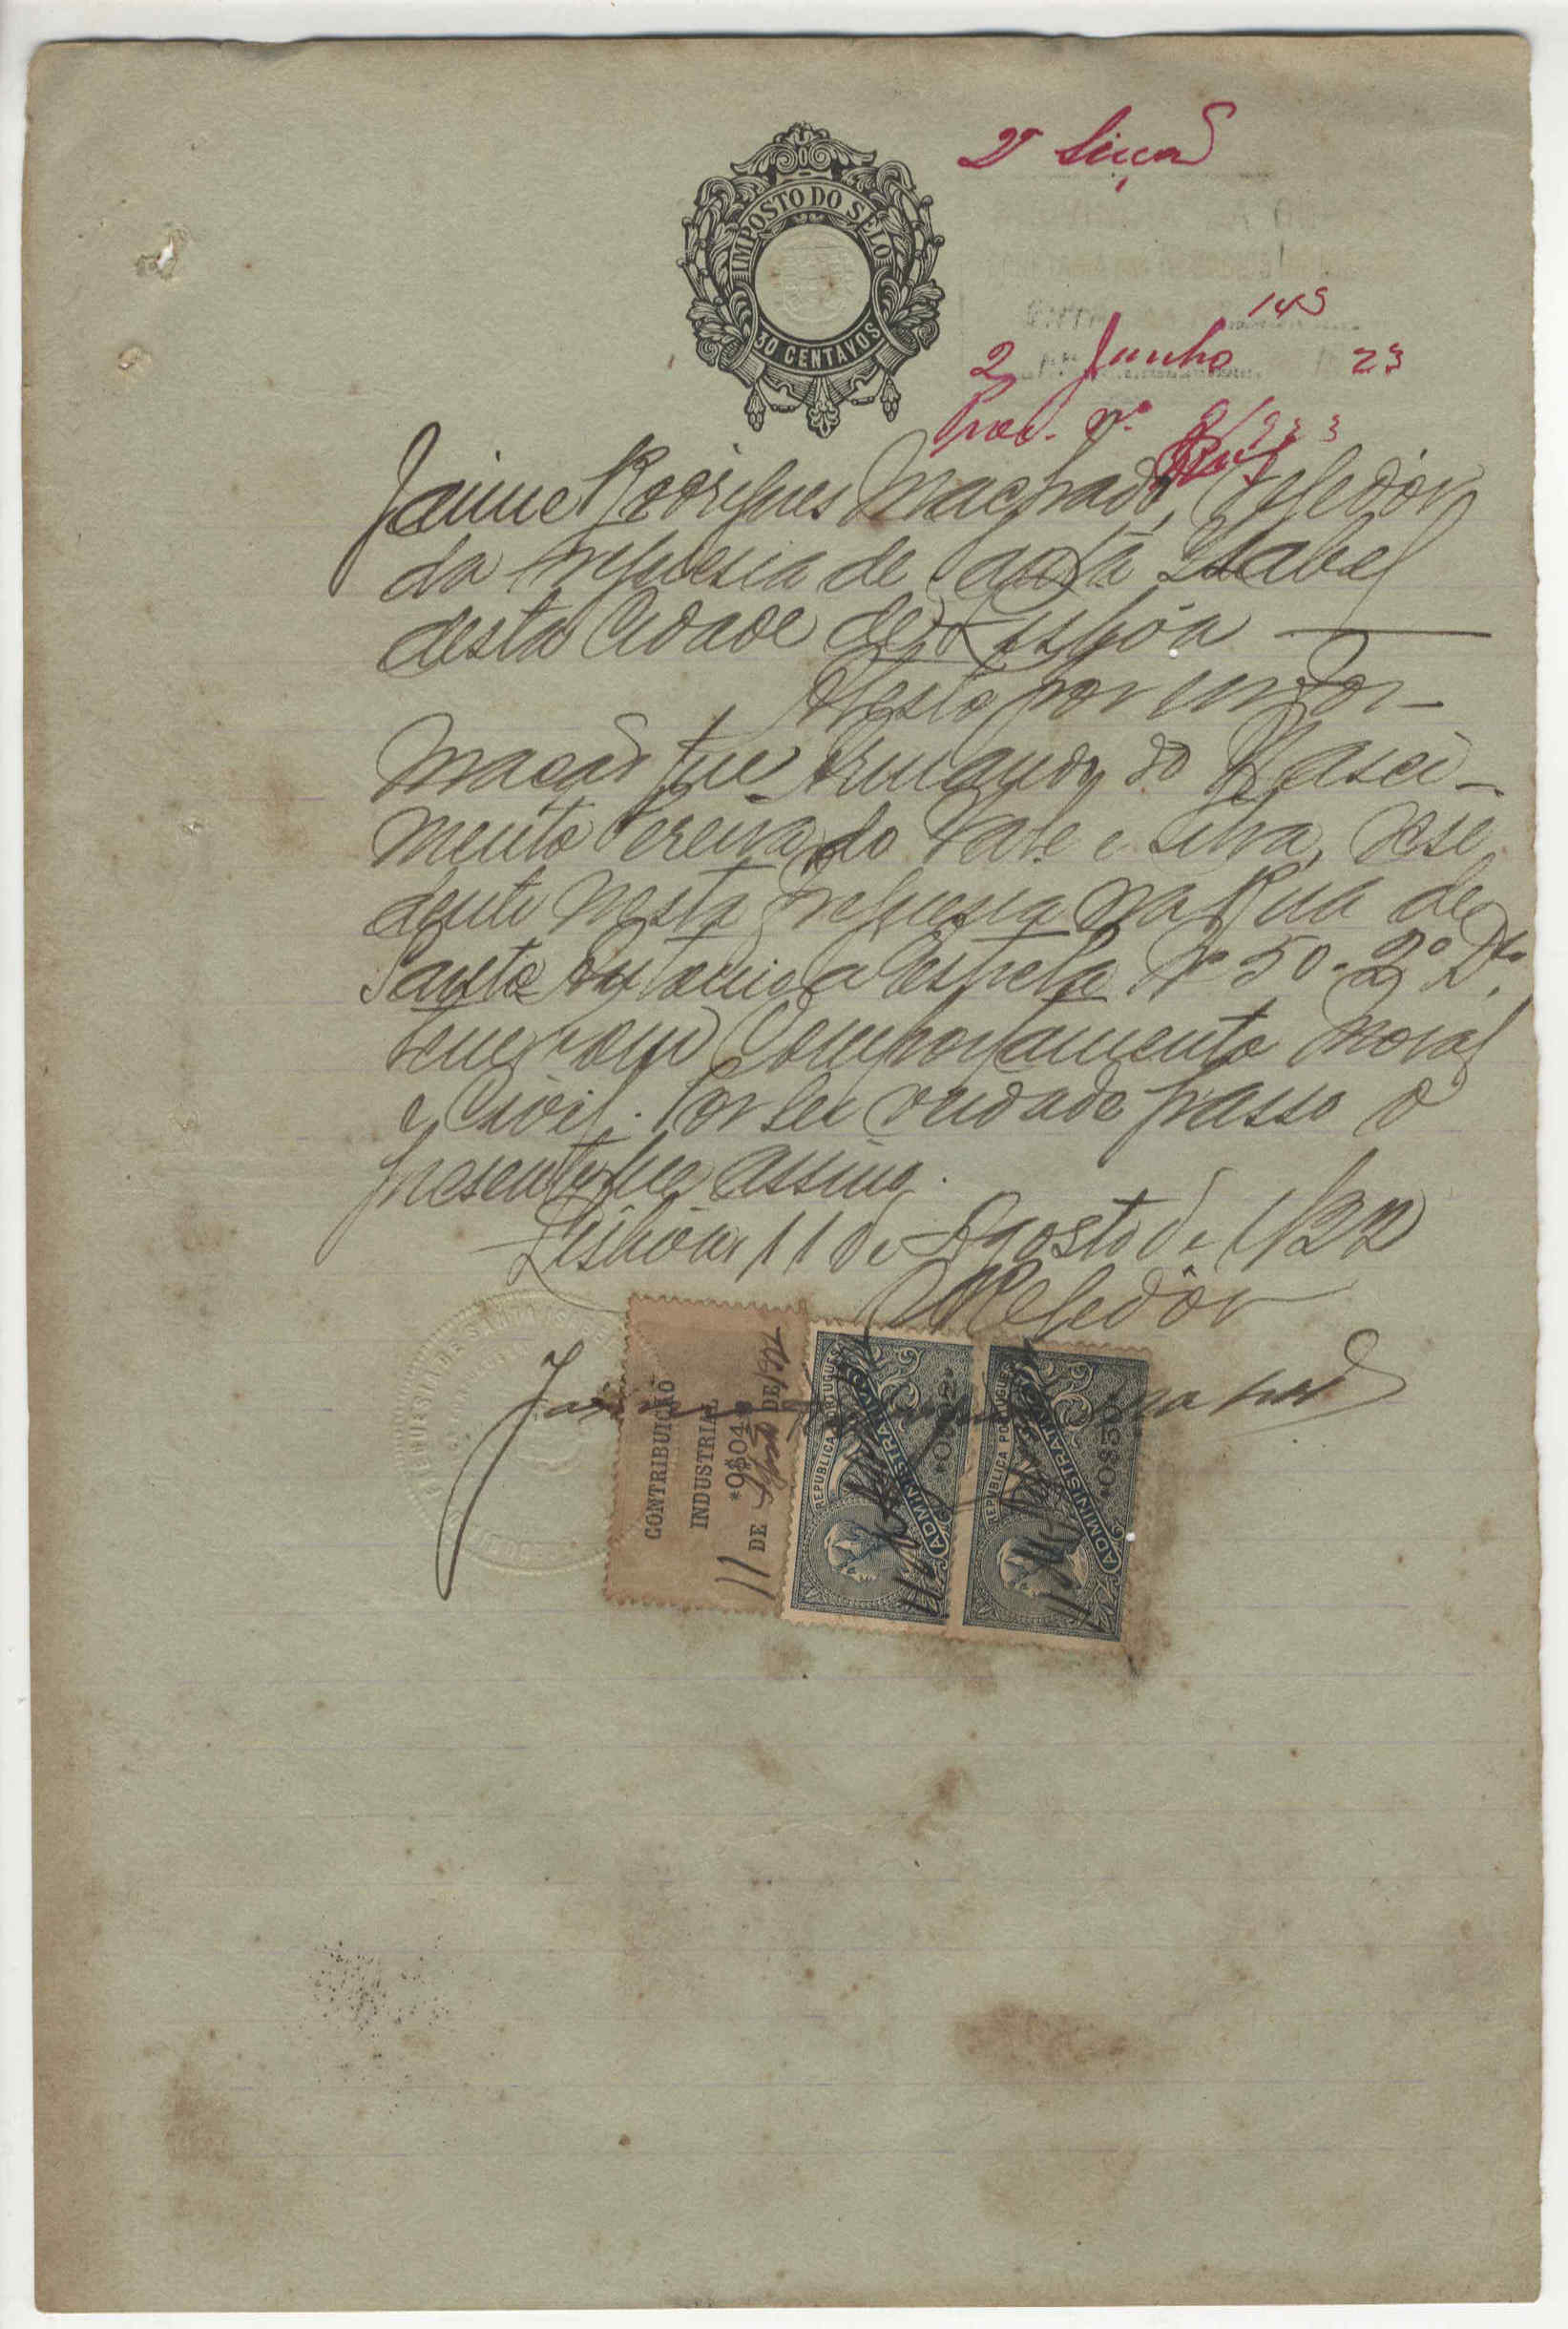 2ª Secção
IMPOSTO DO SELO
30 CENTAVOS
145
2 Junho 23
Proc. nº 9/923
Jaime Rodrigues Machado, Regedor
da Freguesia de Santa Isabel
desta Cidade de Lisbôa
Atesto por infor-
mação que Armando do Nasci-
mento Pereira do Vale e Silva, resi
dente nesta freguesia na Rua de
Santo Antonio á Estrela Nº 50-2º Dto,
tem bom Comportamento Moral
e Civil. Por ser verdade passo o
presente que assino.
Lisbôa 11 de Agosto de 1922
O Regedôr
Jaime Rodrigues Machado
FREGUESIA DE SANTA ISABEL
CONTRIBUIÇÃO
INDUSTRIAL
*0$04*
11 DE Agosto DE 192
REPUBLICA PORTUGUESA
ADMINISTRATIVO
REPUBLICA PORTUGUESA
ADMINISTRATIVO
*0$50*